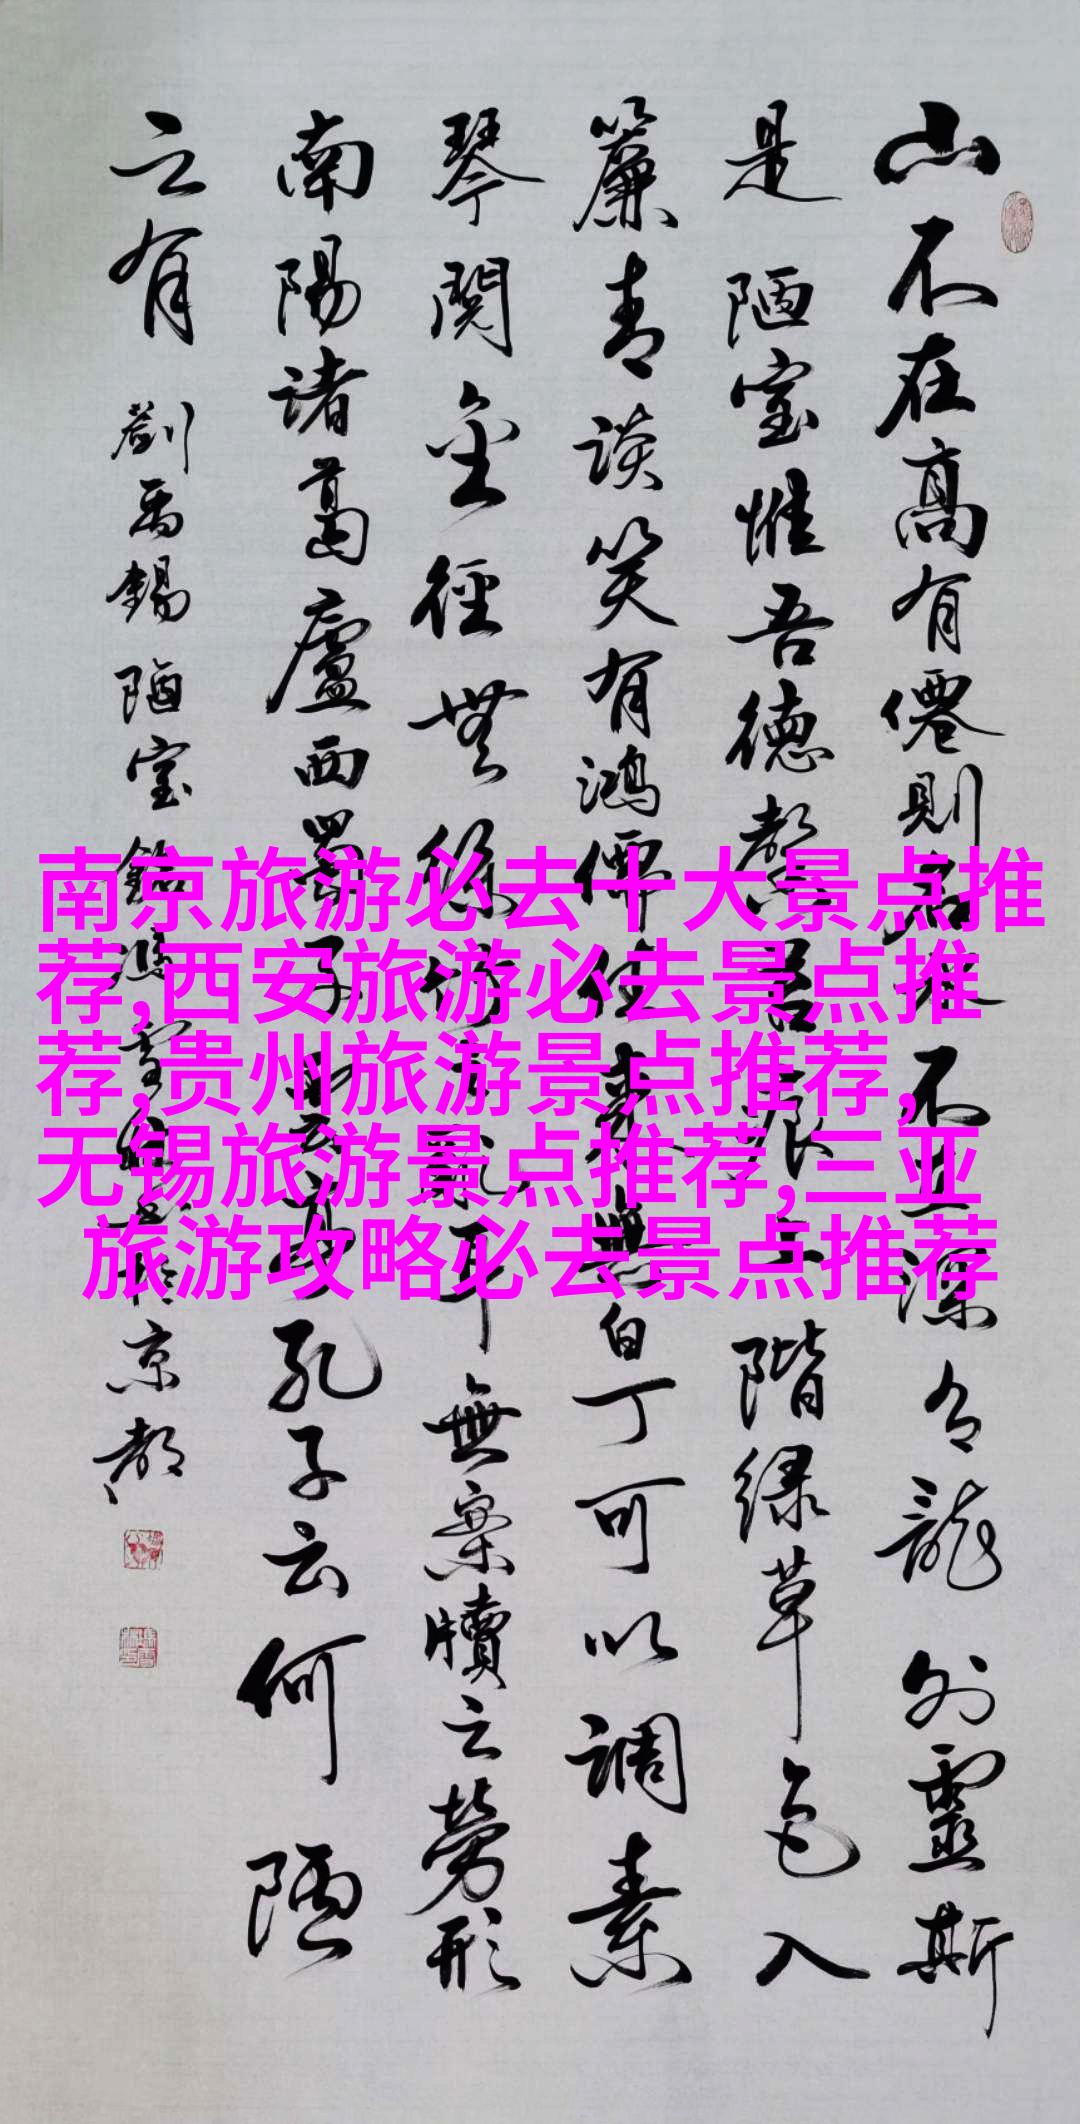 山不在高有僊則名水不在深有龍則靈斯
是陋室惟吾德馨苔痕上階緑草色入
簾青談笑有鴻儒往來無白丁可以調素
琴閱金徑無絲竹之亂耳無案牘之勞形
南陽諸葛廬西蜀子雲亭孔子云何陋
之有 劉禹錫陋室銘 京都
南京旅游必去十大景点推
荐,西安旅游必去景点推
荐,贵州旅游景点推荐,
无锡旅游景点推荐,三亚
旅游攻略必去景点推荐